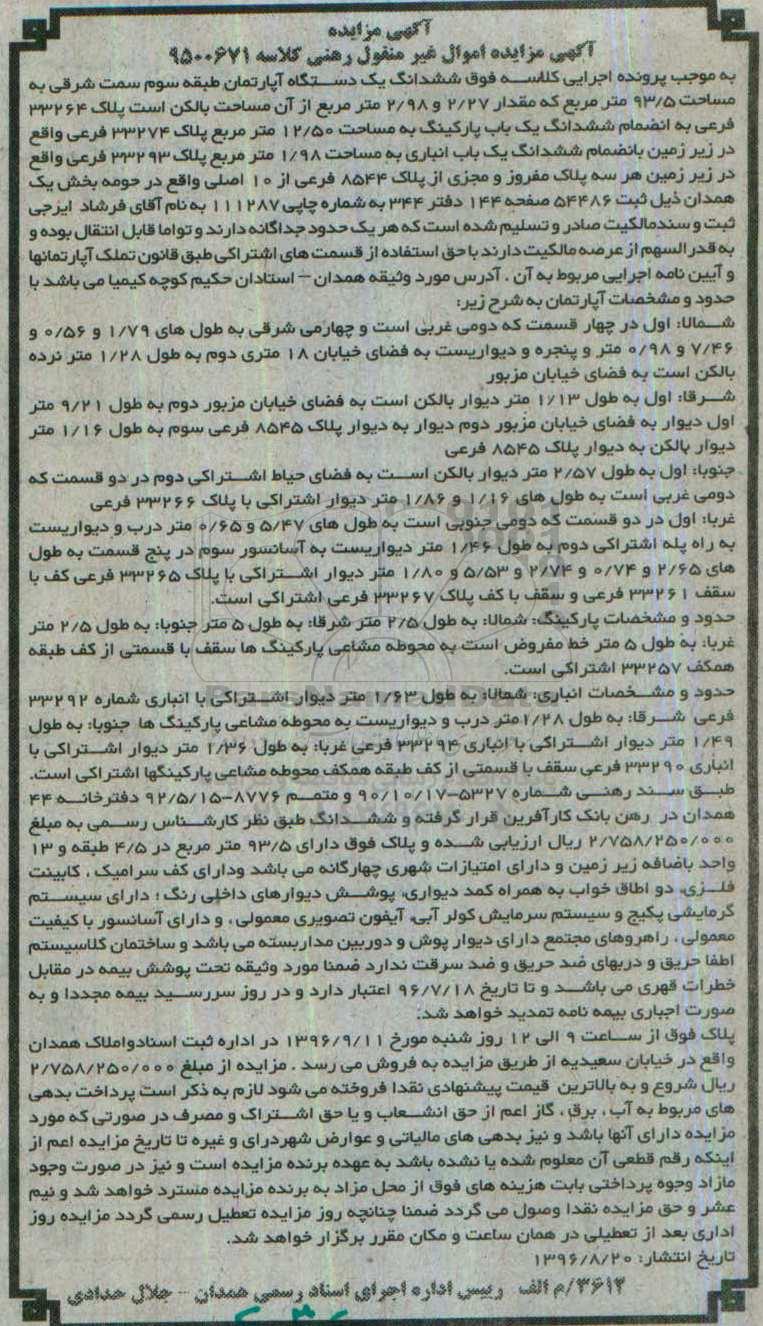 آگهی مزایده
آگهی مزایده اموال غیر منقول رهنی کلاسه ۹۵۰۰۶۷۱
به موجب پرونده اجرایی کلاسه فوق ششدانگ یک دستگاه آپارتمان طبقه سوم سمت شرقی به
مساحت ۹۳/۵ متر مربع که مقدار ۲/۲۷ و ۲/۹۸ متر مربع از آن مساحت بالکن است پلاک ۳۳۲۶۴
فرعی به انضمام ششدانگ یک باب پارکینگ به مساحت ۱۲/۵۰ متر مربع پلاک ۳۳۲۷۴ فرعی واقع
در زیر زمین بانضمام ششدانگ یک باب انباری به مساحت ۱/۹۸ متر مربع پلاک ۳۳۲۹۳ فرعی واقع
در زیر زمین هر سه پلاک مفروز و مجزی از پلاک ۸۵۴۴ فرعی از ۱۰ اصلی واقع در حومه بخش یک
همدان ذیل ثبت ۵۴۴۸۶ صفحه ۱۴۴ دفتر ۳۴۴ به شماره چاپی ۱۱۱۲۸۷ به نام آقای فرشاد ایرجی
ثبت و سندمالکیت صادر و تسلیم شده است که هر یک حدود جداگانه دارند و تواما قابل انتقال بوده و
به قدرالسهم از عرصه مالکیت دارند با حق استفاده از قسمت های اشتراکی طبق قانون تملک آپارتمانها
و آیین نامه اجرایی مربوط به آن . آدرس مورد وثیقه همدان – استادان حکیم کوچه کیمیا می باشد با
حدود و مشخصات آپارتمان به شرح زیر:
شمالا: اول در چهار قسمت که دومی غربی است و چهارمی شرقی به طول های ۱/۷۹ و ۰/۵۶ و
۷/۴۶ و ۰/۹۸ متر و پنجره و دیواریست به فضای خیابان ۱۸ متری دوم به طول ۱/۲۸ متر نرده
بالکن است به فضای خیابان مزبور
شرقا: اول به طول ۱/۱۳ متر دیوار بالکن است به فضای خیابان مزبور دوم به طول ۹/۲۱ متر
اول دیوار به فضای خیابان مزبور دوم دیوار به دیوار پلاک ۸۵۴۵ فرعی سوم به طول ۱/۱۶ متر
دیوار بالکن به دیوار پلاک ۸۵۴۵ فرعی
جنوبا: اول به طول ۲/۵۷ متر دیوار بالکن است به فضای حیاط اشتراکی دوم در دو قسمت که
دومی غربی است به طول های ۱/۱۶ و ۱/۸۶ متر دیوار اشتراکی با پلاک ۳۳۲۶۶ فرعی
غربا: اول در دو قسمت که دومی جنوبی است به طول های ۵/۴۷ و ۰/۶۵ متر درب و دیواریست
به راه پله اشتراکی دوم به طول ۱/۴۶ متر دیواریست به آسانسور سوم در پنج قسمت به طول
های ۲/۶۵ و ۰/۷۴ و ۲/۷۴ و ۵/۵۳ و ۱/۸۰ متر دیوار اشتراکی با پلاک ۳۳۲۶۵ فرعی کف با
سقف ۳۳۲۶۱ فرعی و سقف با کف پلاک ۳۳۲۶۷ فرعی اشتراکی است.
حدود و مشخصات پارکینگ: شمالا: به طول ۲/۵ متر شرقا: به طول ۵ متر جنوبا: به طول ۲/۵ متر
غربا: به طول ۵ متر خط مفروض است به محوطه مشاعی پارکینگ ها سقف با قسمتی از کف طبقه
همکف ۳۳۲۵۷ اشتراکی است.
حدود و مشخصات انباری: شمالا: به طول ۱/۶۳ متر دیوار اشتراکی با انباری شماره ۳۳۲۹۲
فرعی شرقا: به طول ۱/۲۸ متر درب و دیواریست به محوطه مشاعی پارکینگ ها جنوبا: به طول
۱/۴۹ متر دیوار اشتراکی با انباری ۳۳۲۹۴ فرعی غربا: به طول ۱/۳۶ متر دیوار اشتراکی با
انباری ۳۳۲۹۰ فرعی سقف با قسمتی از کف طبقه همکف محوطه مشاعی پارکینگها اشتراکی است.
طبق سند رهنی شماره ۵۳۲۷-۹۰/۱۰/۱۷ و متمم ۸۷۷۶-۹۲/۵/۱۵ دفترخانه ۴۴
همدان در رهن بانک کارآفرین قرار گرفته و ششدانگ طبق نظر کارشناس رسمی به مبلغ
۲/۷۵۸/۲۵۰/۰۰۰ ریال ارزیابی شده و پلاک فوق دارای ۹۳/۵ متر مربع در ۴/۵ طبقه و ۱۳
واحد باضافه زیر زمین و دارای امتیازات شهری چهارگانه می باشد ودارای کف سرامیک ، کابینت
فلزی، دو اطاق خواب به همراه کمد دیواری، پوشش دیوارهای داخلی رنگ ؛ دارای سیستم
گرمایشی پکیج و سیستم سرمایش کولر آبی، آیفون تصویری معمولی ، و دارای آسانسور با کیفیت
معمولی ، راهروهای مجتمع دارای دیوار پوش و دوربین مداربسته می باشد و ساختمان کلاسیستم
اطفا حریق و دربهای ضد حریق و ضد سرقت ندارد ضمنا مورد وثیقه تحت پوشش بیمه در مقابل
خطرات قهری می باشد و تا تاریخ ۹۶/۷/۱۸ اعتبار دارد و در روز سررسید بیمه مجددا و به
صورت اجباری بیمه نامه تمدید خواهد شد.
پلاک فوق از ساعت ۹ الی ۱۲ روز شنبه مورخ ۱۳۹۶/۹/۱۱ در اداره ثبت اسنادواملاک همدان
واقع در خیابان سعیدیه از طریق مزایده به فروش می رسد . مزایده از مبلغ ۲/۷۵۸/۲۵۰/۰۰۰
ریال شروع و به بالاترین قیمت پیشنهادی نقدا فروخته می شود لازم به ذکر است پرداخت بدهی
های مربوط به آب ، برق ، گاز اعم از حق انشعاب و یا حق اشتراک و مصرف در صورتی که مورد
مزایده دارای آنها باشد و نیز بدهی های مالیاتی و عوارض شهردرای و غیره تا تاریخ مزایده اعم از
اینکه رقم قطعی آن معلوم شده یا نشده باشد به عهده برنده مزایده است و نیز در صورت وجود
مازاد وجوه پرداختی بابت هزینه های فوق از محل مزاد به برنده مزایده مسترد خواهد شد و نیم
عشر و حق مزایده نقدا وصول می گردد ضمنا چنانچه روز مزایده تعطیل رسمی گردد مزایده روز
اداری بعد از تعطیلی در همان ساعت و مکان مقرر برگزار خواهد شد.
تاریخ انتشار: ۱۳۹۶/۸/۲۰
۳۶۱۲/م الف رییس اداره اجرای اسناد رسمی همدان – جلال حدادی